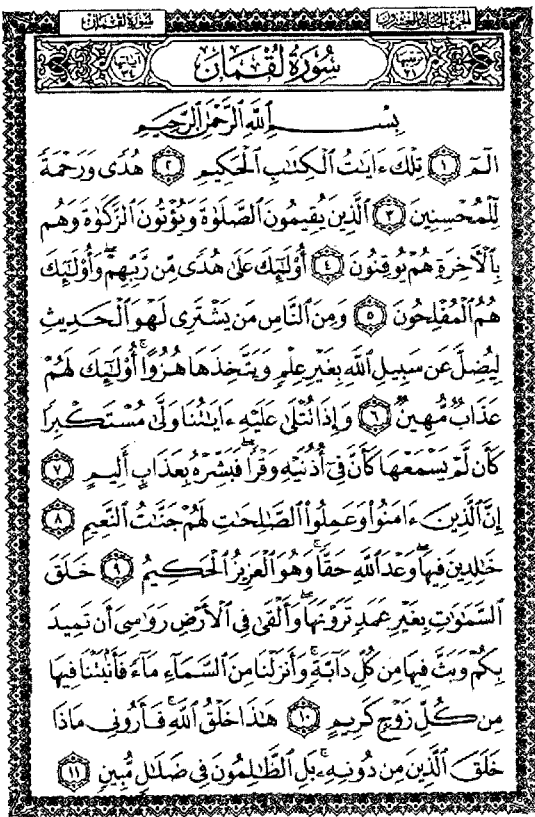 الجزء الحادي والعشرون سورة لقمان
ترتيبها ٣١ سُورَةُ لُقْمَانَ آياتها ٣٤
بِسْمِ ٱللَّهِ ٱلرَّحْمَٰنِ ٱلرَّحِيمِ
الٓمٓ ١ تِلْكَ ءَايَٰتُ ٱلْكِتَٰبِ ٱلْحَكِيمِ ٢ هُدًى وَرَحْمَةً
لِّلْمُحْسِنِينَ ٣ ٱلَّذِينَ يُقِيمُونَ ٱلصَّلَوٰةَ وَيُؤْتُونَ ٱلزَّكَوٰةَ وَهُم
بِٱلْءَاخِرَةِ هُمْ يُوقِنُونَ ٤ أُو۟لَٰٓئِكَ عَلَىٰ هُدًى مِّن رَّبِّهِمْ ۖ وَأُو۟لَٰٓئِكَ
هُمُ ٱلْمُفْلِحُونَ ٥ وَمِنَ ٱلنَّاسِ مَن يَشْتَرِى لَهْوَ ٱلْحَدِيثِ
لِيُضِلَّ عَن سَبِيلِ ٱللَّهِ بِغَيْرِ عِلْمٍ وَيَتَّخِذَهَا هُزُوًا ۚ أُو۟لَٰٓئِكَ لَهُمْ
عَذَابٌ مُّهِينٌ ٦ وَإِذَا تُتْلَىٰ عَلَيْهِ ءَايَٰتُنَا وَلَّىٰ مُسْتَكْبِرًا
كَأَن لَّمْ يَسْمَعْهَا كَأَنَّ فِىٓ أُذُنَيْهِ وَقْرًا ۖ فَبَشِّرْهُ بِعَذَابٍ أَلِيمٍ ٧
إِنَّ ٱلَّذِينَ ءَامَنُوا۟ وَعَمِلُوا۟ ٱلصَّٰلِحَٰتِ لَهُمْ جَنَّٰتُ ٱلنَّعِيمِ ٨
خَٰلِدِينَ فِيهَا ۖ وَعْدَ ٱللَّهِ حَقًّا ۚ وَهُوَ ٱلْعَزِيزُ ٱلْحَكِيمُ ٩ خَلَقَ
ٱلسَّمَٰوَٰتِ بِغَيْرِ عَمَدٍ تَرَوْنَهَا ۖ وَأَلْقَىٰ فِى ٱلْأَرْضِ رَوَٰسِىَ أَن تَمِيدَ
بِكُمْ وَبَثَّ فِيهَا مِن كُلِّ دَآبَّةٍ ۚ وَأَنزَلْنَا مِنَ ٱلسَّمَآءِ مَآءً فَأَنۢبَتْنَا فِيهَا
مِن كُلِّ زَوْجٍ كَرِيمٍ ١٠ هَٰذَا خَلْقُ ٱللَّهِ فَأَرُونِى مَاذَا
خَلَقَ ٱلَّذِينَ مِن دُونِهِۦ ۚ بَلِ ٱلظَّٰلِمُونَ فِى ضَلَٰلٍ مُّبِينٍ ١١